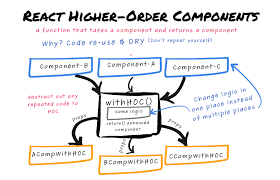 REACT HIGHER-ORDER COMPONENTS
a function that takes a component and returns a component
Why? Code re-use & DRY (Don't repeat yourself)
Component-B
Component-A
Component-C
abstract out any
repeated code to
HOC
withHOC()
some logic
return() enhanced
component
Change logic in
one place instead
of multiple places
props
props
props
ACompWithHOC
BCompWithHOC
CCompWithHOC